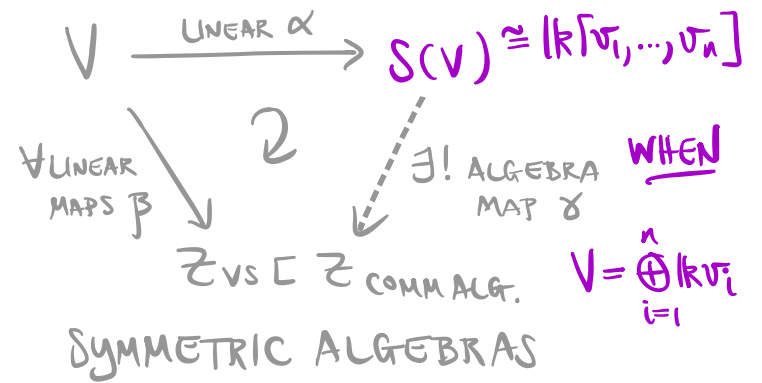 LINEAR α
V S(V) ≅ 𝕜[v₁,...,vₙ]
∀ LINEAR
MAPS β
∃! ALGEBRA
MAP γ
WHEN
Z VS [ Z COMM ALG.
V = ⊕ⁿᵢ₌₁ 𝕜vᵢ
SYMMETRIC ALGEBRAS